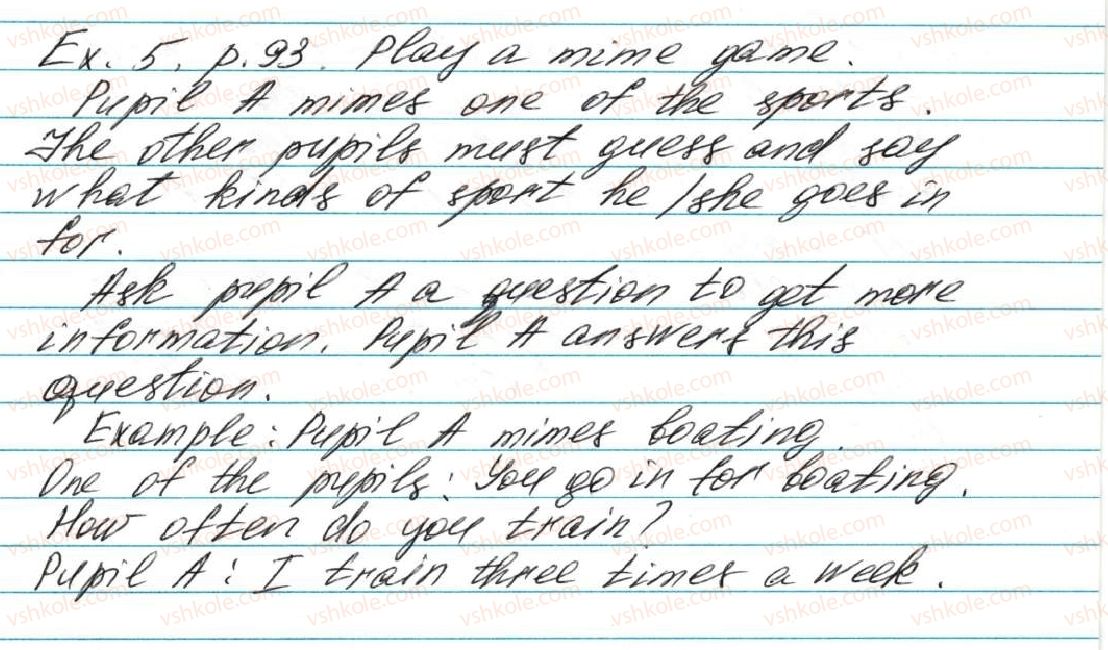 Ex. 5, p.93. Play a mime game.
Pupil A mimes one of the sports.
The other pupils must guess and say
what kinds of sport he /she goes in
for.
Ask pupil A a question to get more
information. Pupil A answers this
question.
Example: Pupil A mimes boating.
One of the pupils: You go in for boating.
How often do you train?
Pupil A: I train three times a week.